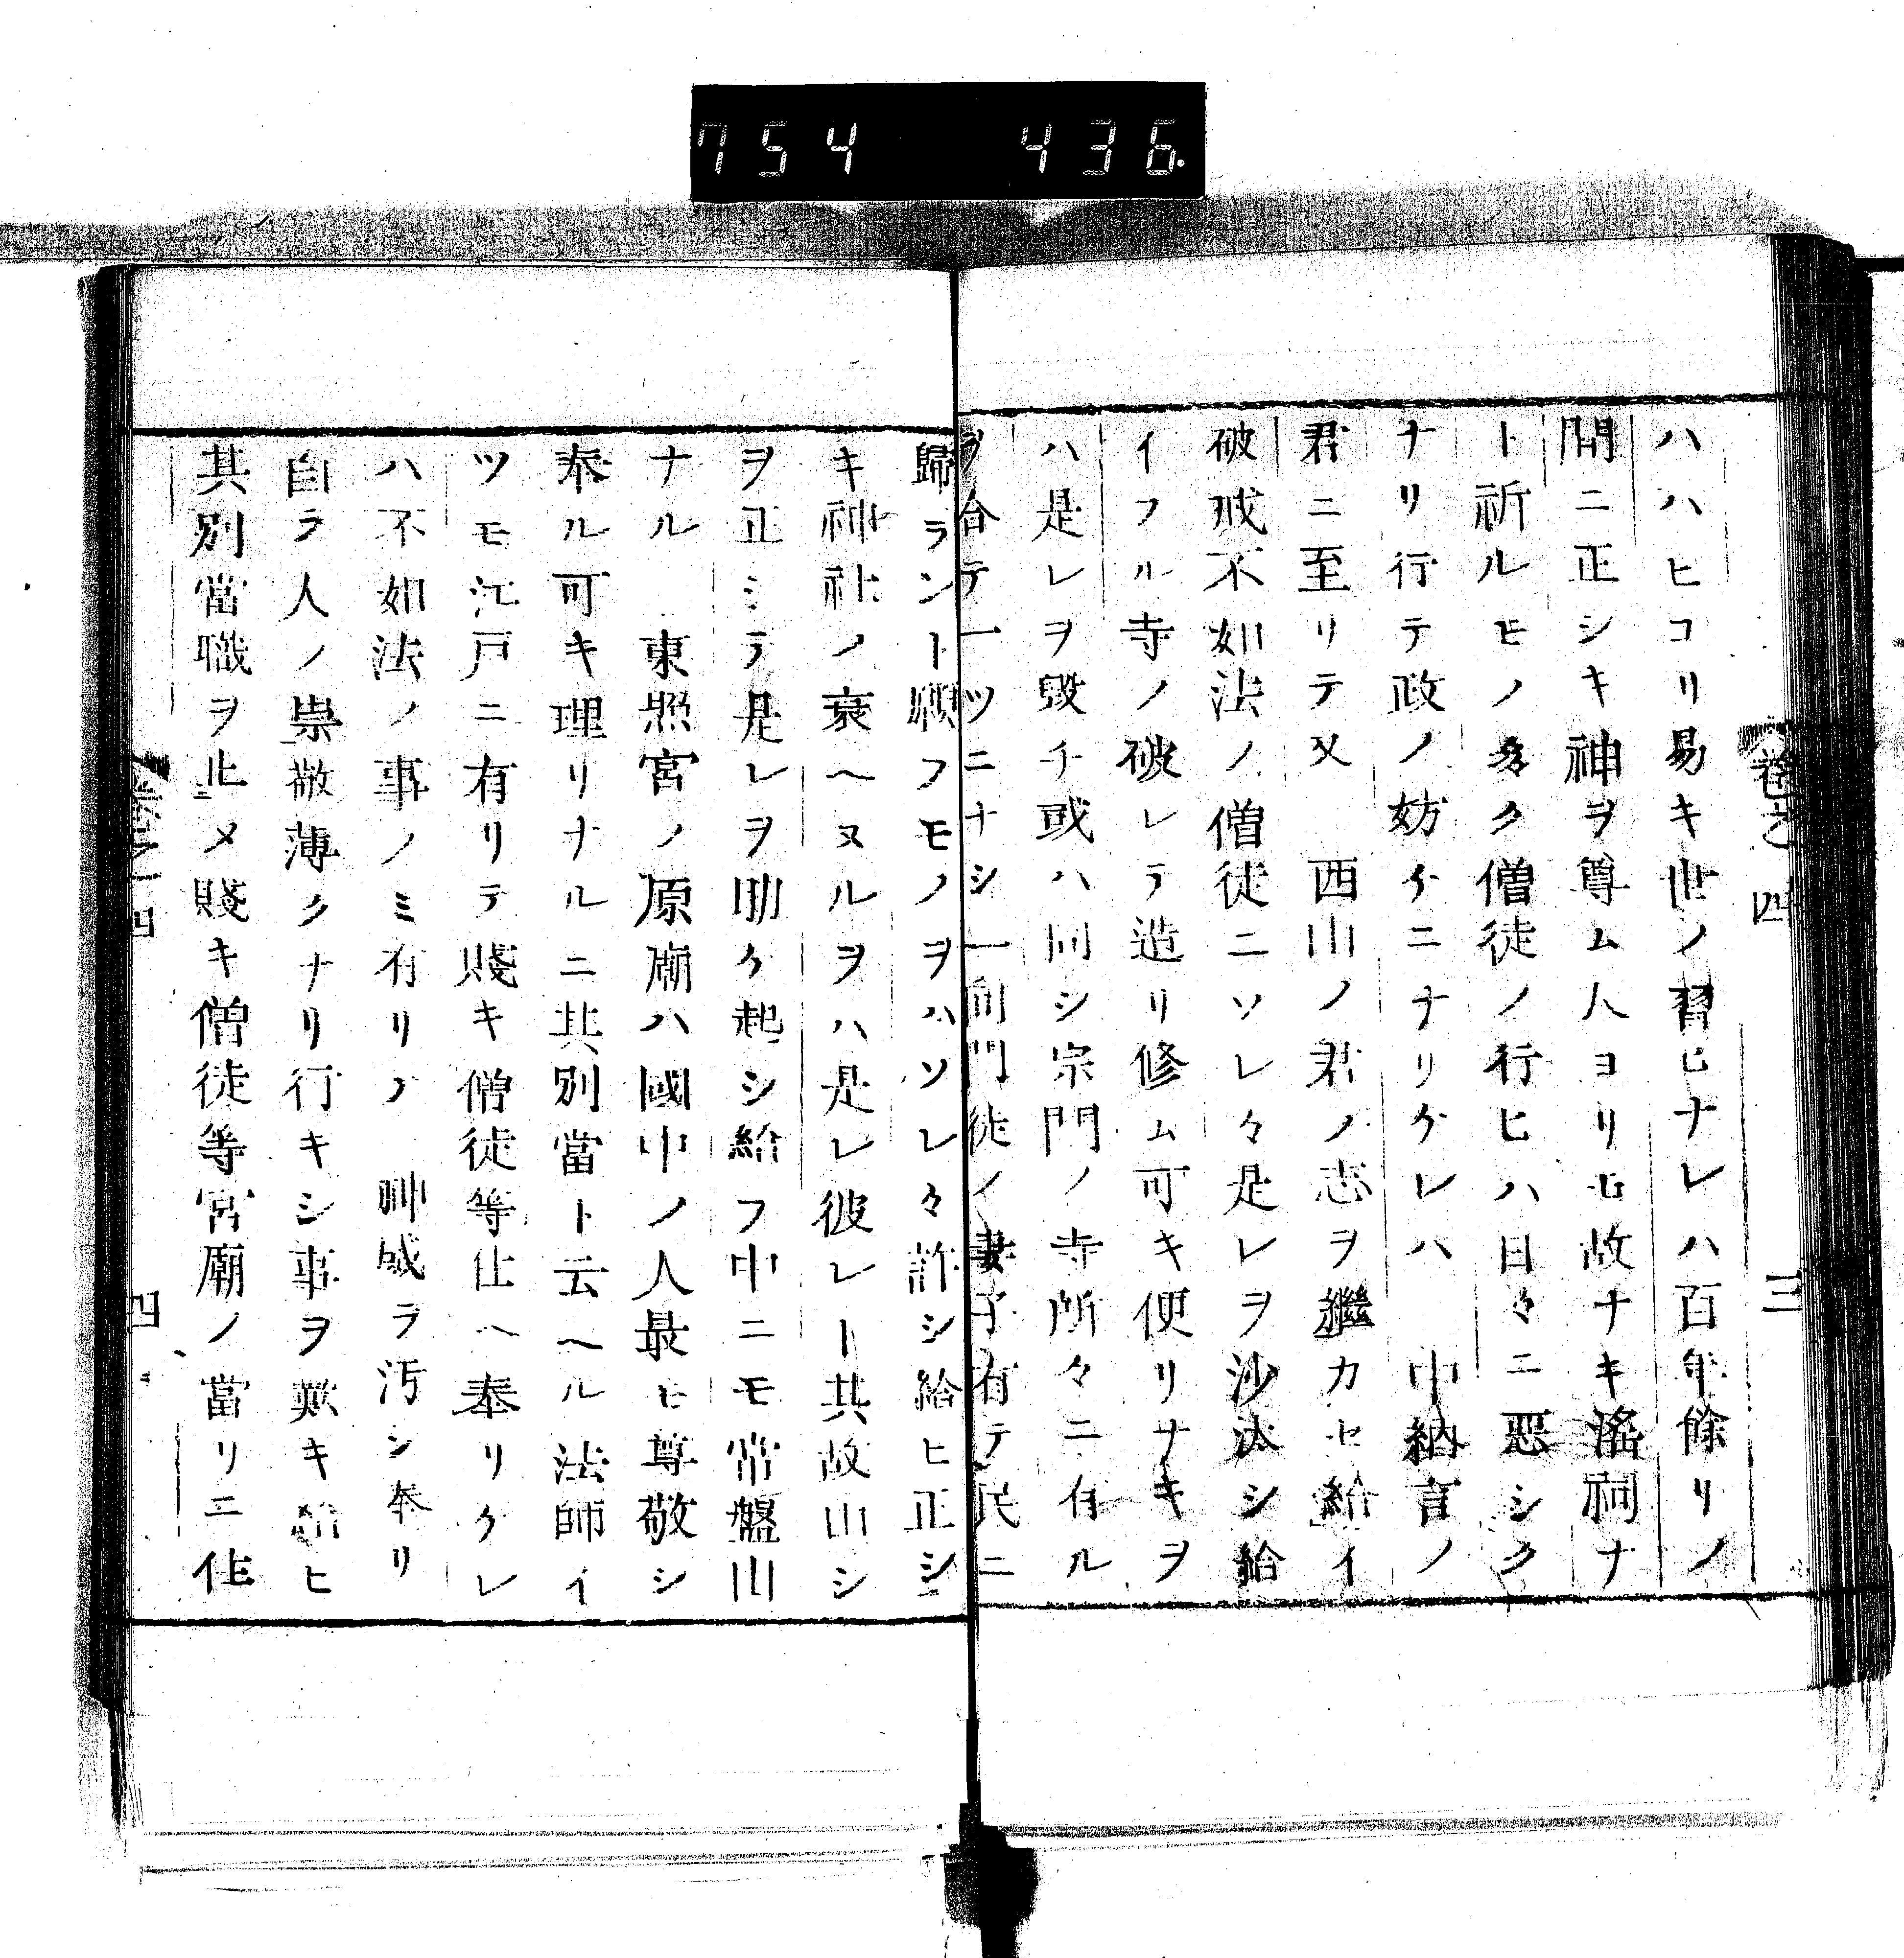 754 436.
卷之四 三
ハハヒコリ易キ世ノ習ヒナレハ百年餘リノ
間ニ正シキ神ヲ尊ム人ヨリモ故ナキ淫祠ナ
ト祈ルモノ多ク僧徒ノ行ヒハ日々ニ惡シク
ナリ行テ政ノ妨ケニナリケレハ 中納言ノ
君ニ至リテ又 西山ノ君ノ志ヲ繼カセ給イ
破戒不如法ノ僧徒ニソレ々是レヲ沙汰シ給
イフル寺ノ破レテ造リ修ム可キ便リナキヲ
ハ是レヲ毀チ或ハ同シ宗門ノ寺所々ニ有ル
ヲ合テ一ツニナシ一向門徒ノ妻子有テ民ニ
歸ラント願フモノヲハソレ々許シ給ヒ正シ
キ神社ノ衰ヘヌルヲハ是レ彼レト其故山シ
ヲ正ミテ是レヲ助ケ起シ給フ中ニモ常盤山
ナル 東照宮ノ原廟ハ國中ノ人最モ尊敬シ
奉ル可キ理リナルニ其別當ト云ヘル法師イ
ツモ江戸ニ有リテ賤キ僧徒等仕ヘ奉リケレ
ハ不如法ノ事ノミ有リノ 神威ヲ汚シ奉リ
自ラ人ノ崇敬薄クナリ行キシ事ヲ歎キ給ヒ
其別當職ヲ止メ賤キ僧徒等宮廟ノ當リニ住
卷之四 四